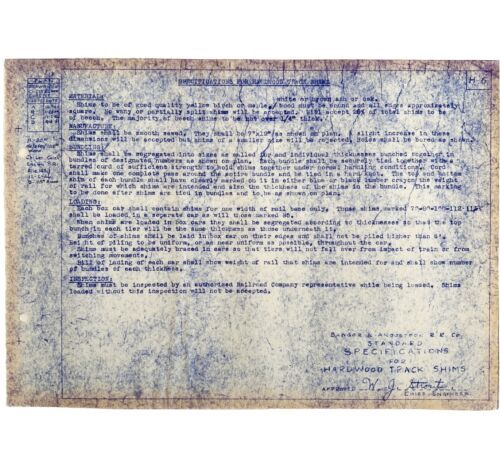 SPECIFICATIONS FOR HARDWOOD TRACK SHIMS
H-
MATERIAL:
white or brown ash or oak.
Shims to be of good quality yellow birch or maple, Wood must be sound and all edges approximately
square. No wavy or partially split shims will be accepted. Will accept 20% of total shims to be
of beech. The majority of beech shims to be not over 1/4" thick.
MANUFACTURE:
Shims shall be smooth sawed. They shall be 7"x12" as shown on plan. A slight increase in these
dimensions will be accepted but shims of a smaller size will be rejected. Holes shall be bored as shown.
BUNDLING:
Shims shall be segregated into sizes as called for and individual thicknesses bundled together in
bundles of designated numbers as shown on plan. Each bundle shall be securely tied together with a
tarred cord of sufficient strength to hold shims together under normal handling conditions. Cord
shall make one complete pass around the entire bundle and be tied in a hard knot. The top and bottom
shim of each bundle shall have clearly marked on it in either blue or black lumber crayon the weight
of rail for which shims are intended and also the thickness of the shims in the bundle. This marking
to be done after shims are tied in bundles and to be as shown on plan.
LOADING:
Each box car shall contain shims for one width of rail base only. Those shims marked
shall be loaded in a separate car as will those marked 85.
When shims are loaded in box cars they shall be segregated according to thicknesses so that the top
bunch in each tier will be the same thickness as those underneath it.
Bunches of shims shall be laid in box car on their edges and shall not be piled higher than
Height of piling to be uniform, or as near uniform as possible, throughout the car.
Shims must be adequately braced in cars so that tiers will not fall over from impact of train or from
switching movements.
Bill of lading of each car shall show weight of rail that shims are intended for and shall show number
of bundles of each thickness.
INSPECTION:
Shims must be inspected by an authorized Railroad Company representative while being loaded. Shims
loaded without this inspection will not be accepted.
BANGOR & AROOSTOOK R.R. CO.
STANDARD
SPECIFICATIONS
FOR
HARDWOOD TRACK SHIMS
APPROVED W. J.
CHIEF ENGINEER